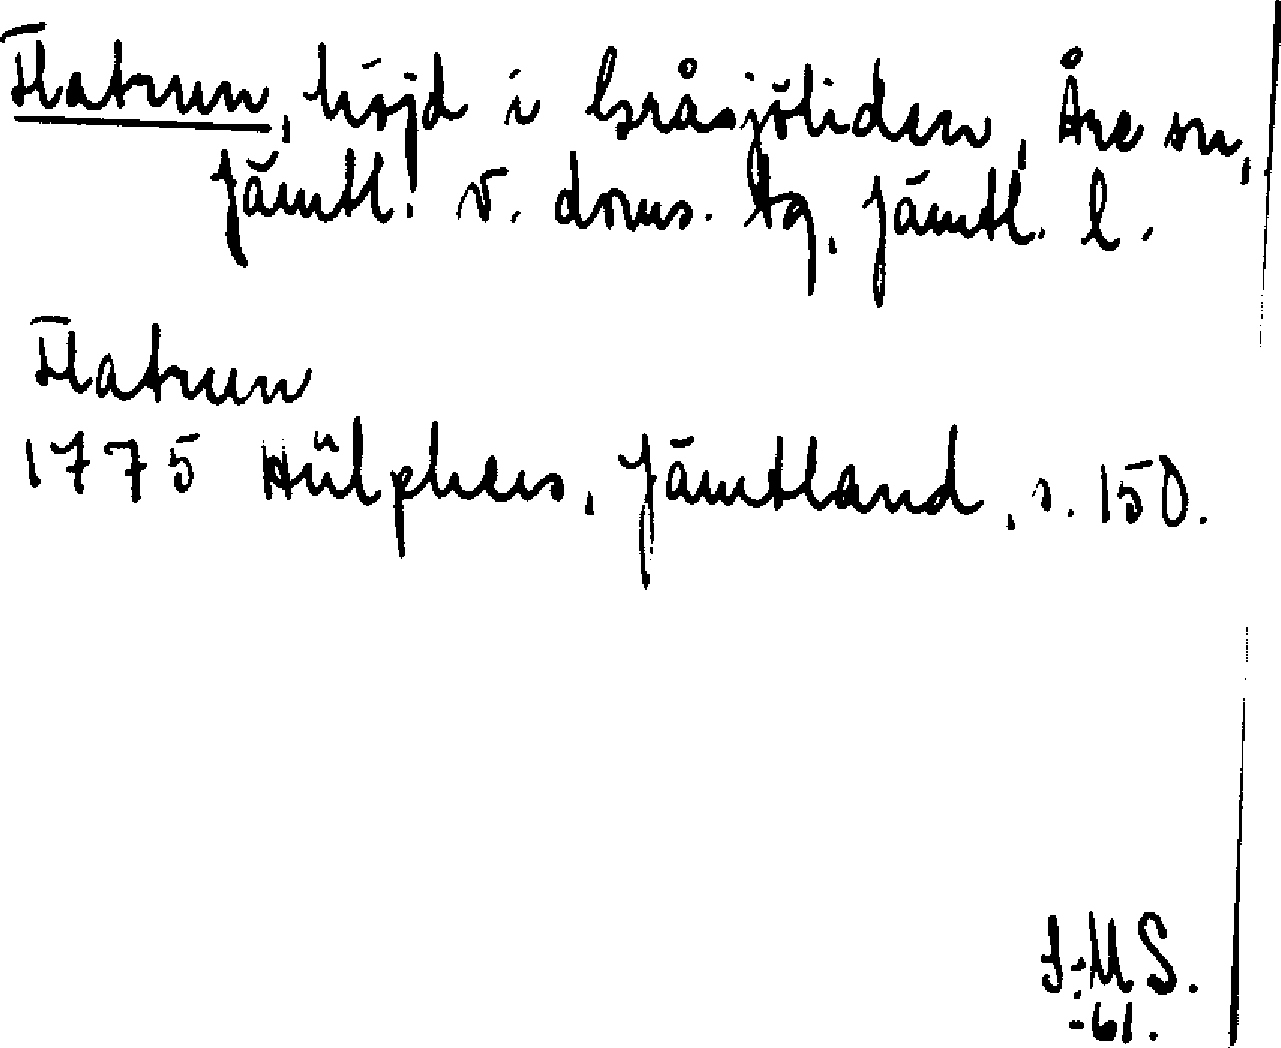 Flatrun, höjd i Gråsjöliden, Åre sn,
Jämtl. v. doms. tg, Jämtl. l.
Flatrun
1775 Hülphers, Jämtland, s. 150.
I-M S.
-61.